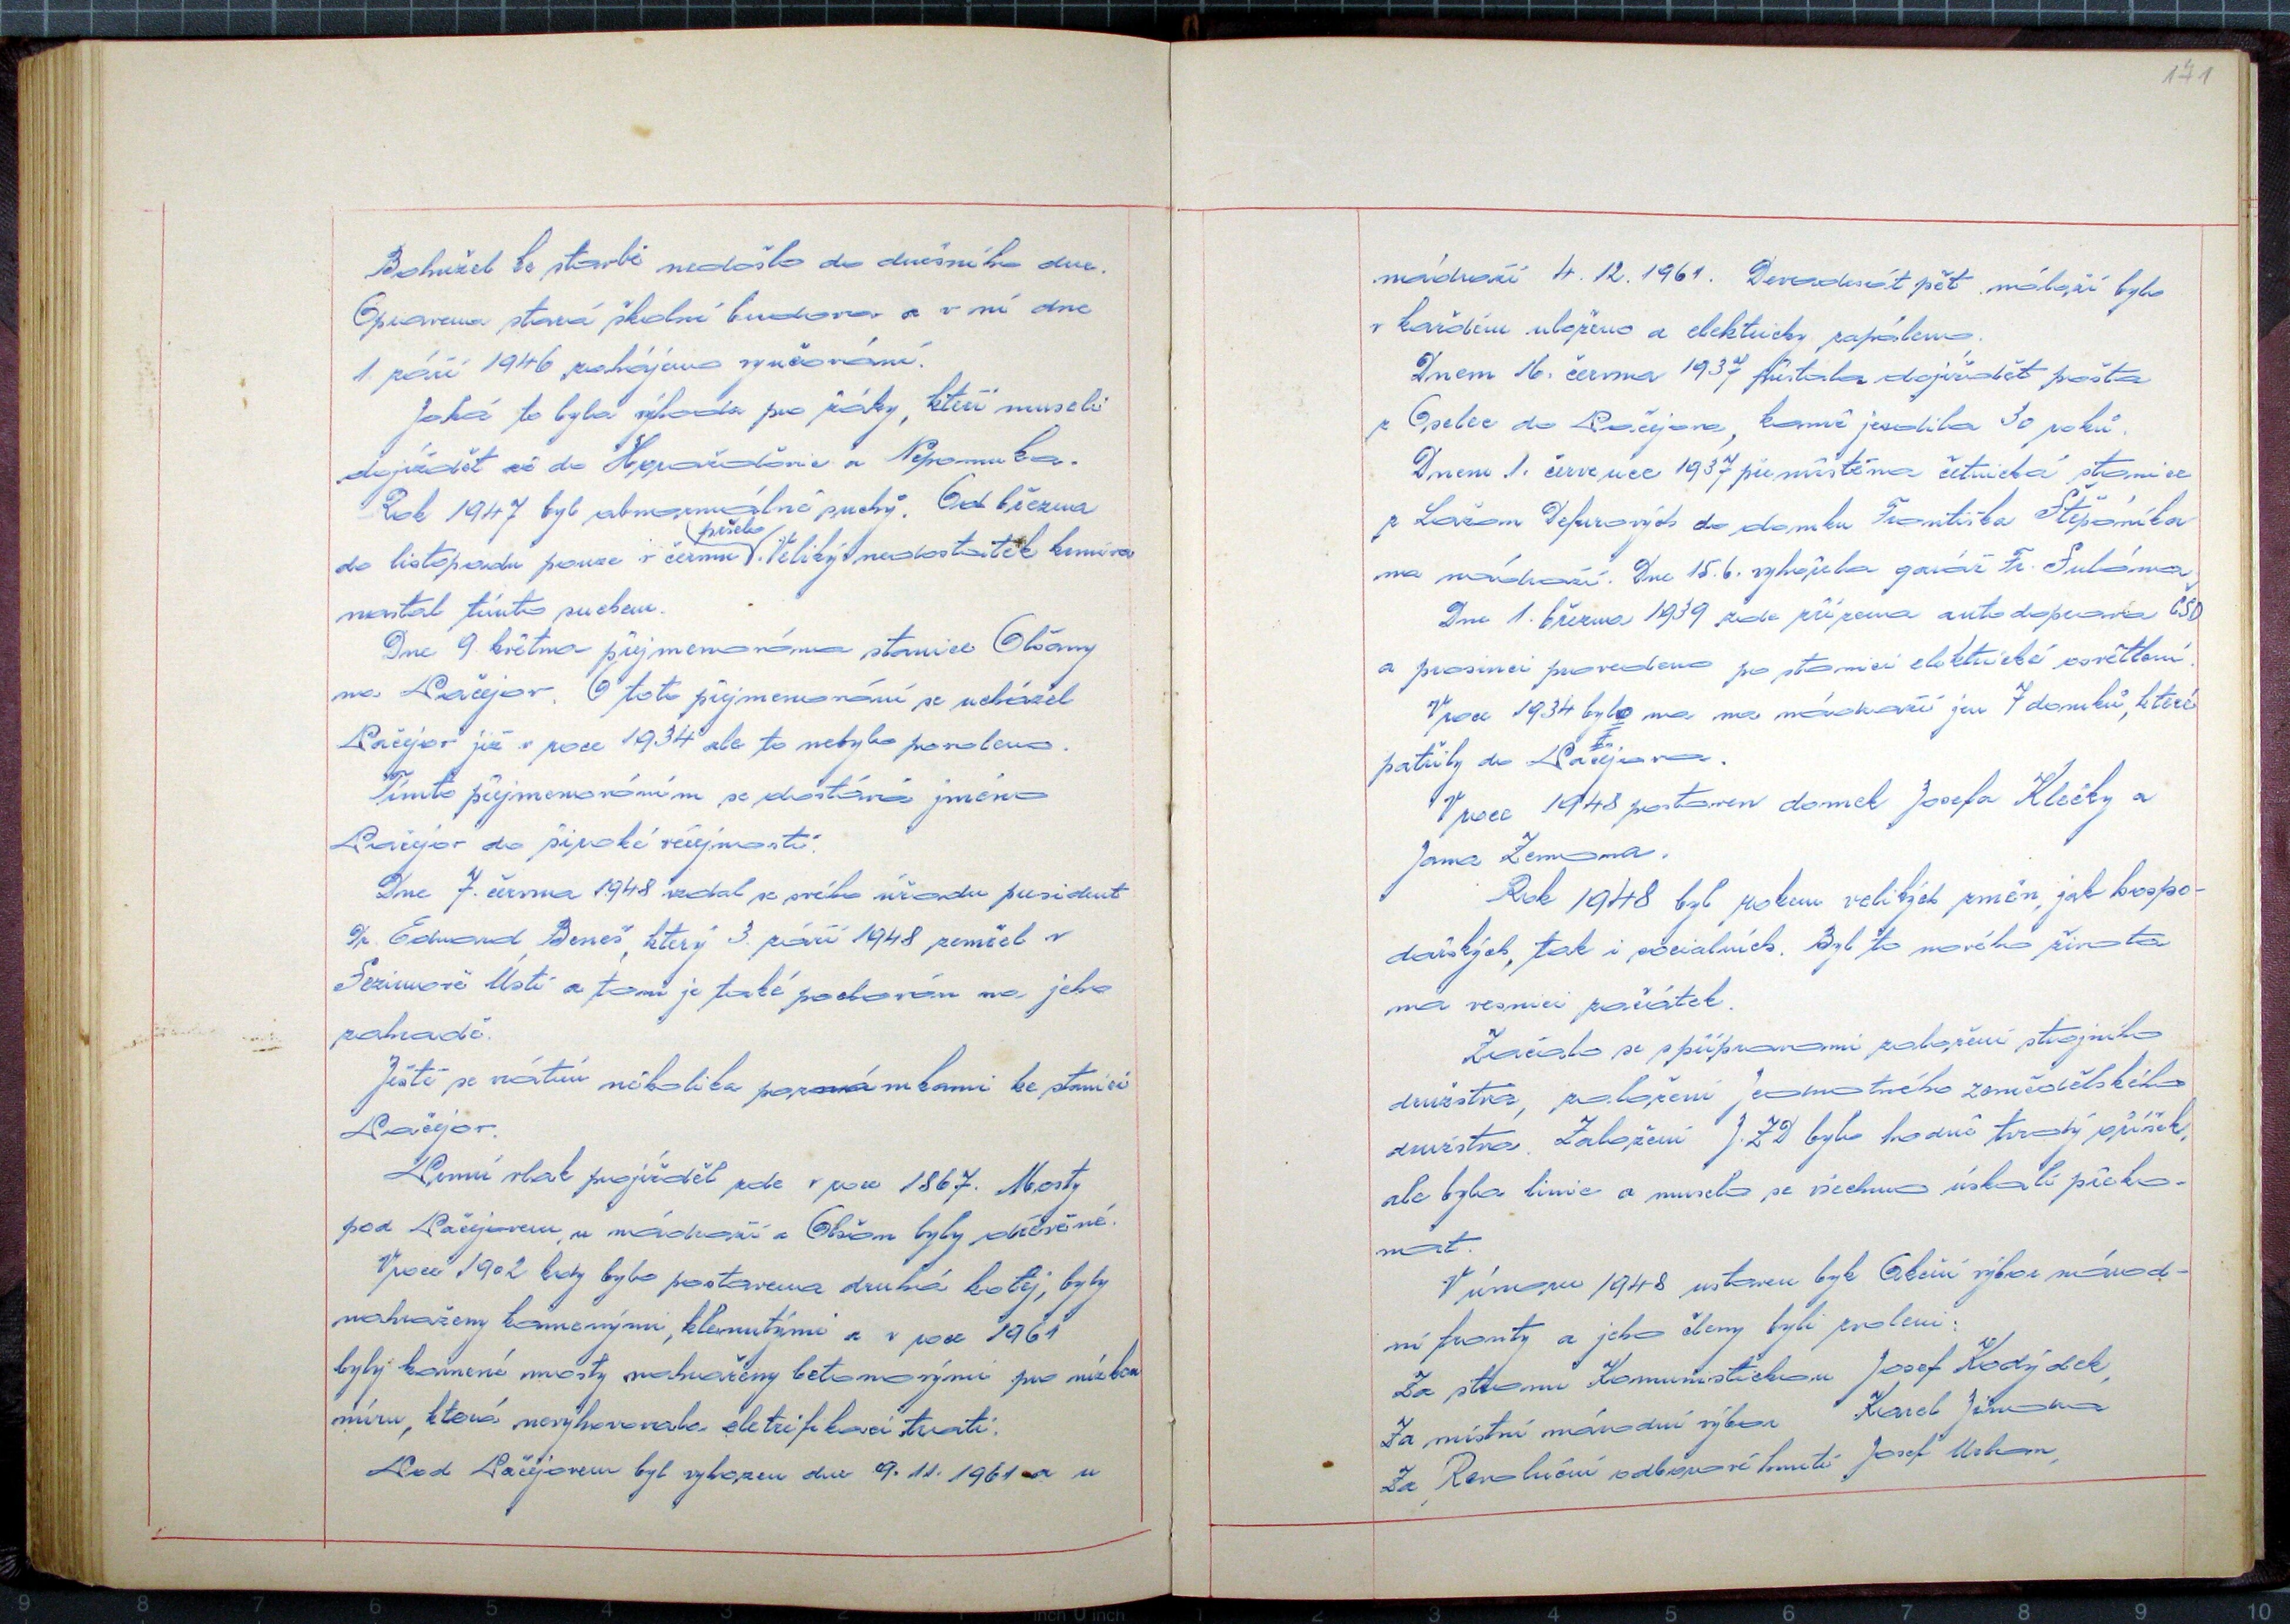 Bohužel ke stavbě nedošlo do dnešního dne.
Opravena stará školní budova a v ní dne
1. září 1946 zahájeno vyučování.
Jaká to byla výhoda pro žáky, kteří museli
dojíždět až do Horažďovic a Nepomuka.
Rok 1947 byl abnormálně suchý. Od března
pršelo
do listopadu pouze v červnu. Veliký nedostatek krmiva
nastal tímto suchem.
Dne 9. května přejmenována stanice Olšany
na Pačejov. O toto přejmenování se ucházel
Pačejov již v roce 1934 ale to nebylo povoleno.
Tímto přejmenováním se dostává jméno
Pačejov do široké veřejnosti.
Dne 7. června 1948 vzdal se svého úřadu president
Dr. Eduard Beneš, který 3. září 1948 zemřel v
Sezimově Ústí a tam je také pochován na jeho
zahradě.
Ještě se vrátím několika poznámkami ke stanici
Pačejov.
První vlak projížděl zde v roce 1867. Mosty
pod Pačejovem, u nádraží a Olšan byly dřevěné.
V roce 1902 kdy byla postavena druhá kolej, byly
nahraženy kamennými, klenutými a v roce 1961
byly kamené mosty nahraženy betonovými pro nízkou
míru, která nevyhovovala eletrifikaci trati.
Pod Pačejovem byl vyhozen dne 9. 11. 1961 a u
171
nádraží 4. 12. 1961. Devadesát pět náloží bylo
v každém uloženo a elektricky zapáleno.
Dnem 16. června 1937 přestala dojíždět pošta
z Opelec do Pačejova, kamž jezdila 30 roků.
Dnem 1. července 1937 přemístěna četnická stanice
z Lažan Defurových do domku Františka Štěpánka
na nádraží. Dne 15. 6. vyhořela garáž Fr. Sulána
Dne 1. března 1939 zde zřízena autodoprava ČSD
a prosinci provedeno po stanici elektrické osvětlení.
V roce 1934 bylo na na nádraží jen 7 domků, které
patřily do Pačejova.
V roce 1948 postaven domek Josefa Klečky a
Jana Zemana.
Rok 1948 byl rokem velikých změn, jak hospo-
dářských, tak i socialních. Byl to nového života
na vesnici začátek.
Začalo se s přípravami založení strojního
družstva, založení Jednotného zemědělského
družstva. Založení J.ZD bylo hodně tvrdý oříšek,
ale byla linie a muselo se všechno úskalí překo-
nat.
V únoru 1948 ustaven byl Akční výbor národ-
ní fronty a jeho členy byli zvoleni:
Za stranu Komunistickou Josef Kodýdek,
Za místní národní výbor Karel Jírovec
Za Revoluční odborové hnutí Josef Urban,